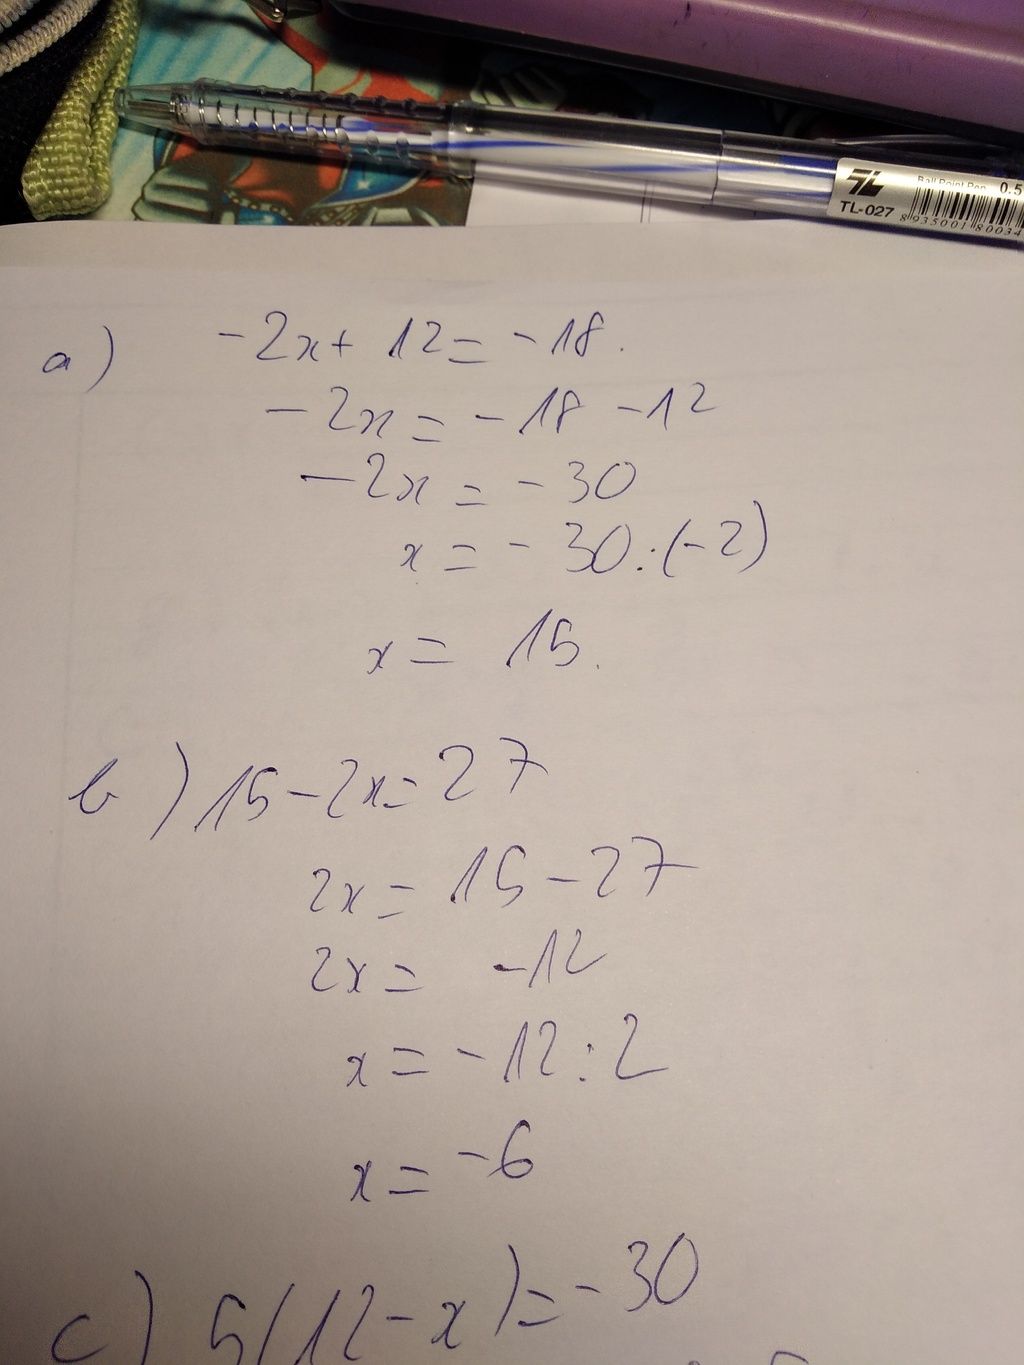 Ball Point Pen 0.5
TL
TL-027
893500180034
a) -2x + 12 = -18.
-2x = -18 -12
-2x = -30
x = -30:(-2)
x = 15.
b) 15-2x=27
2x = 15-27
2x = -12
x = -12:2
x = -6
c) 5(12-x)=-30